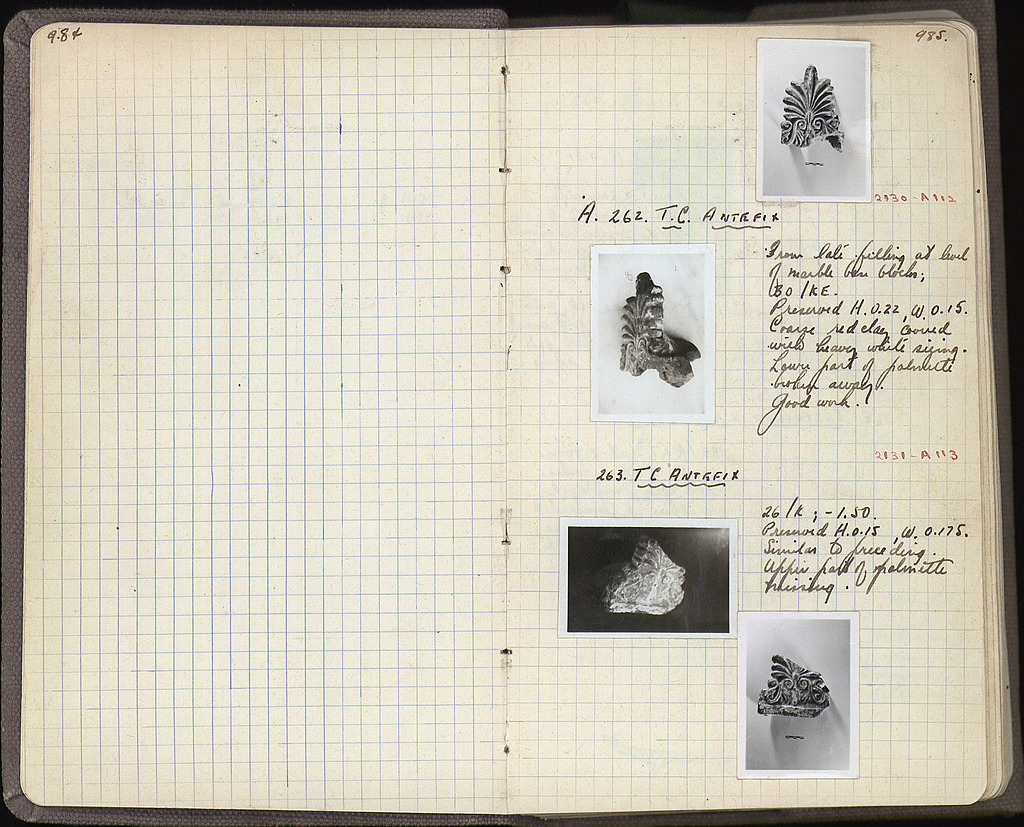 984
985.
2130-A112
A. 262. T.C. ANTEFIX
From late filling at level
of marble base blocks;
30/KE.
Preserved H. 0.22, W. 0.15.
Coarse red clay covered
with heavy white sizing.
Lower part of palmette
broken away.
Good work.
2131-A113
263. TC ANTEFIX
26/K; -1.50.
Preserved H. 0.15, W. 0.175.
Similar to preceding.
Upper part of palmette
missing.